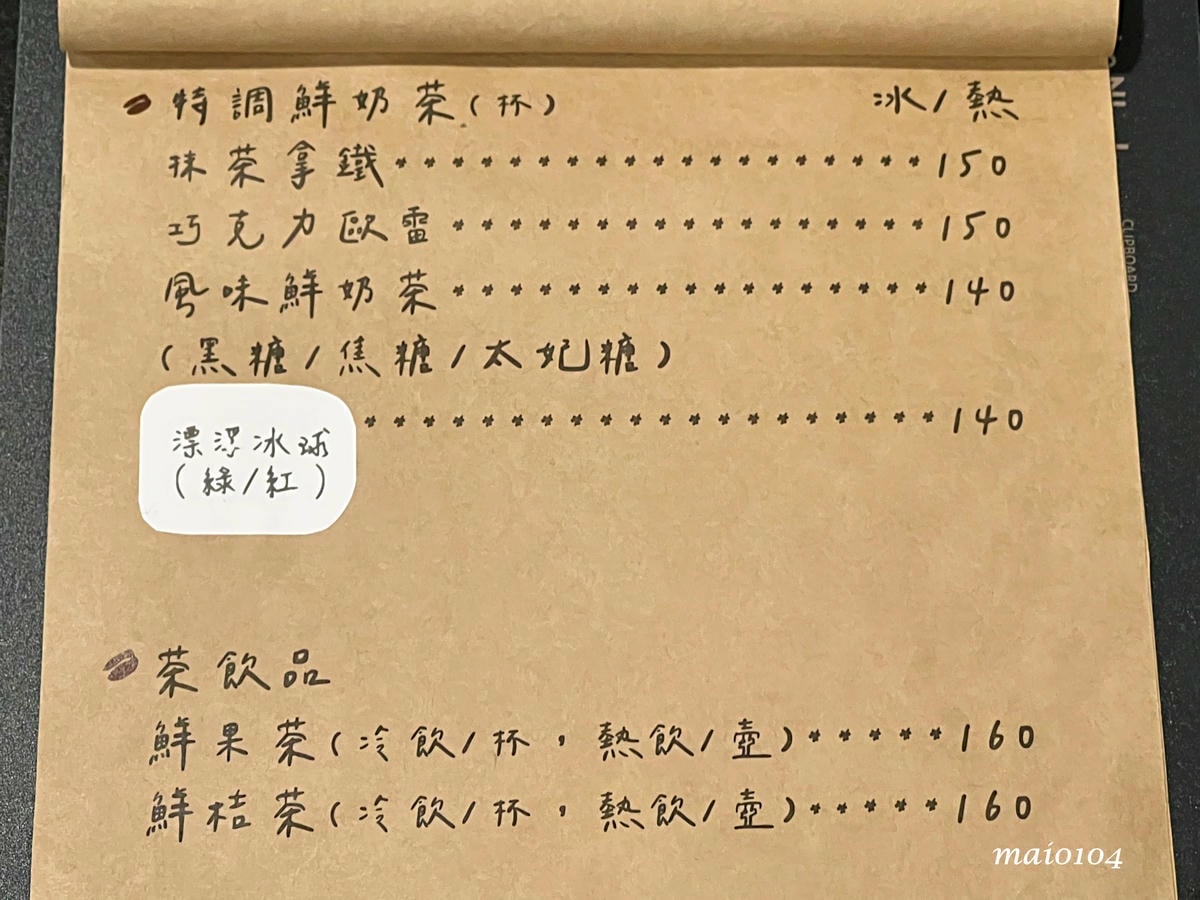 特調鮮奶茶(杯) 冰/熱
抹茶拿鐵******************150
巧克力歐雷*****************150
風味鮮奶茶*****************140
(黑糖/焦糖/太妃糖)
漂浮冰球********************140
(綠/紅)
茶飲品
鮮果茶(冷飲/杯,熱飲/壺)*****160
鮮桔茶(冷飲/杯,熱飲/壺)*****160
CLIPBOARD
maio104